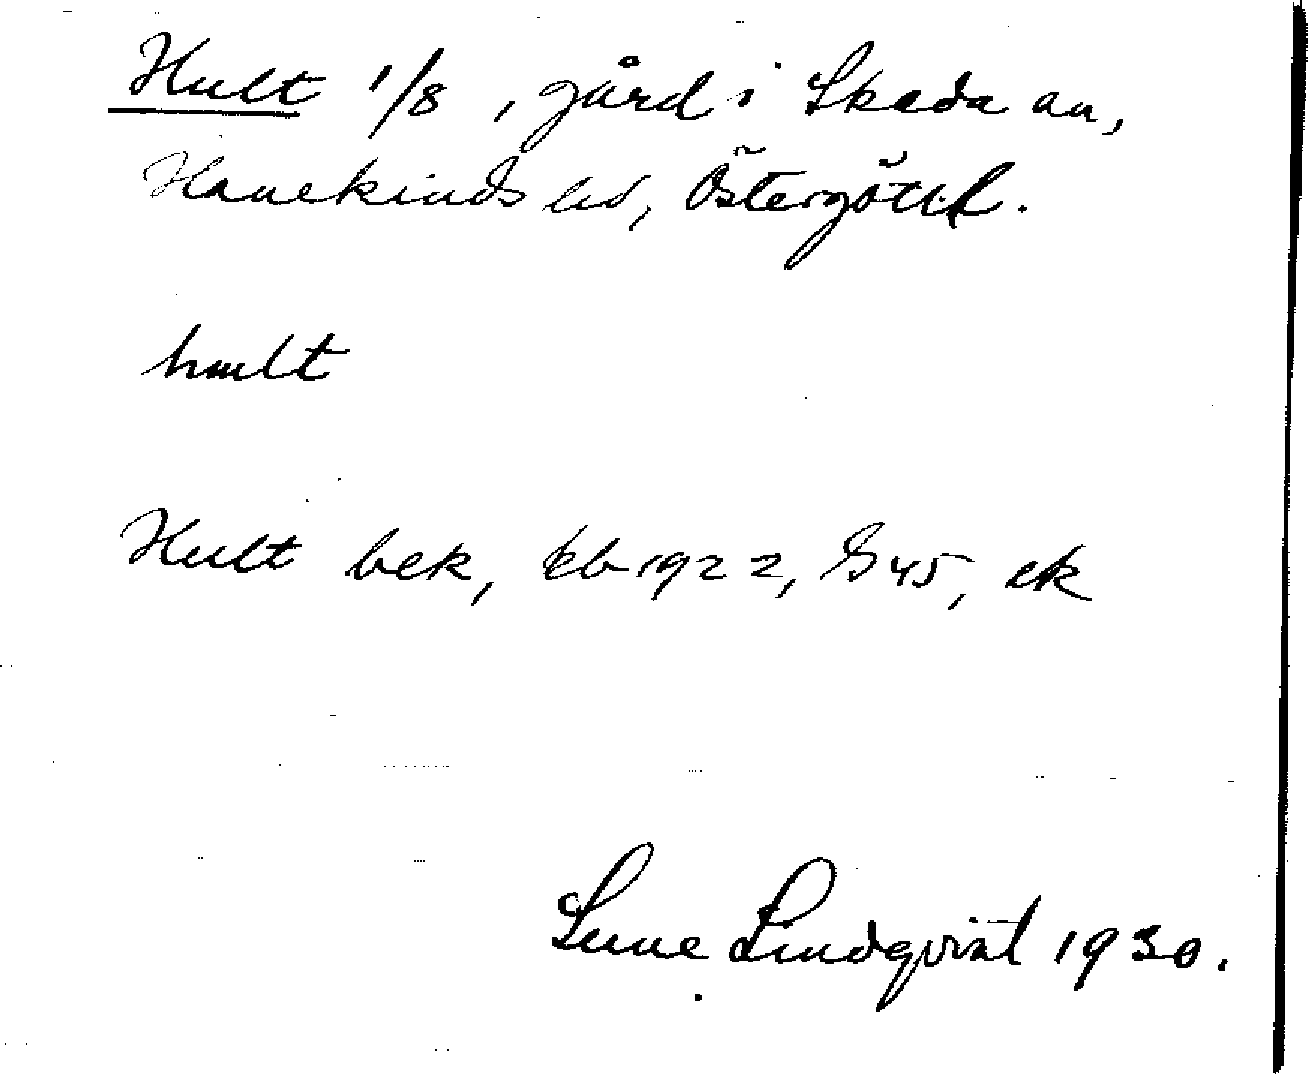 Hult 1/8, gård i Skeda sn,
Hanekinds hd, Östergötl.
hult
Hult bek, kb 1922, S 45, ek
Sune Lindqvist 1930.